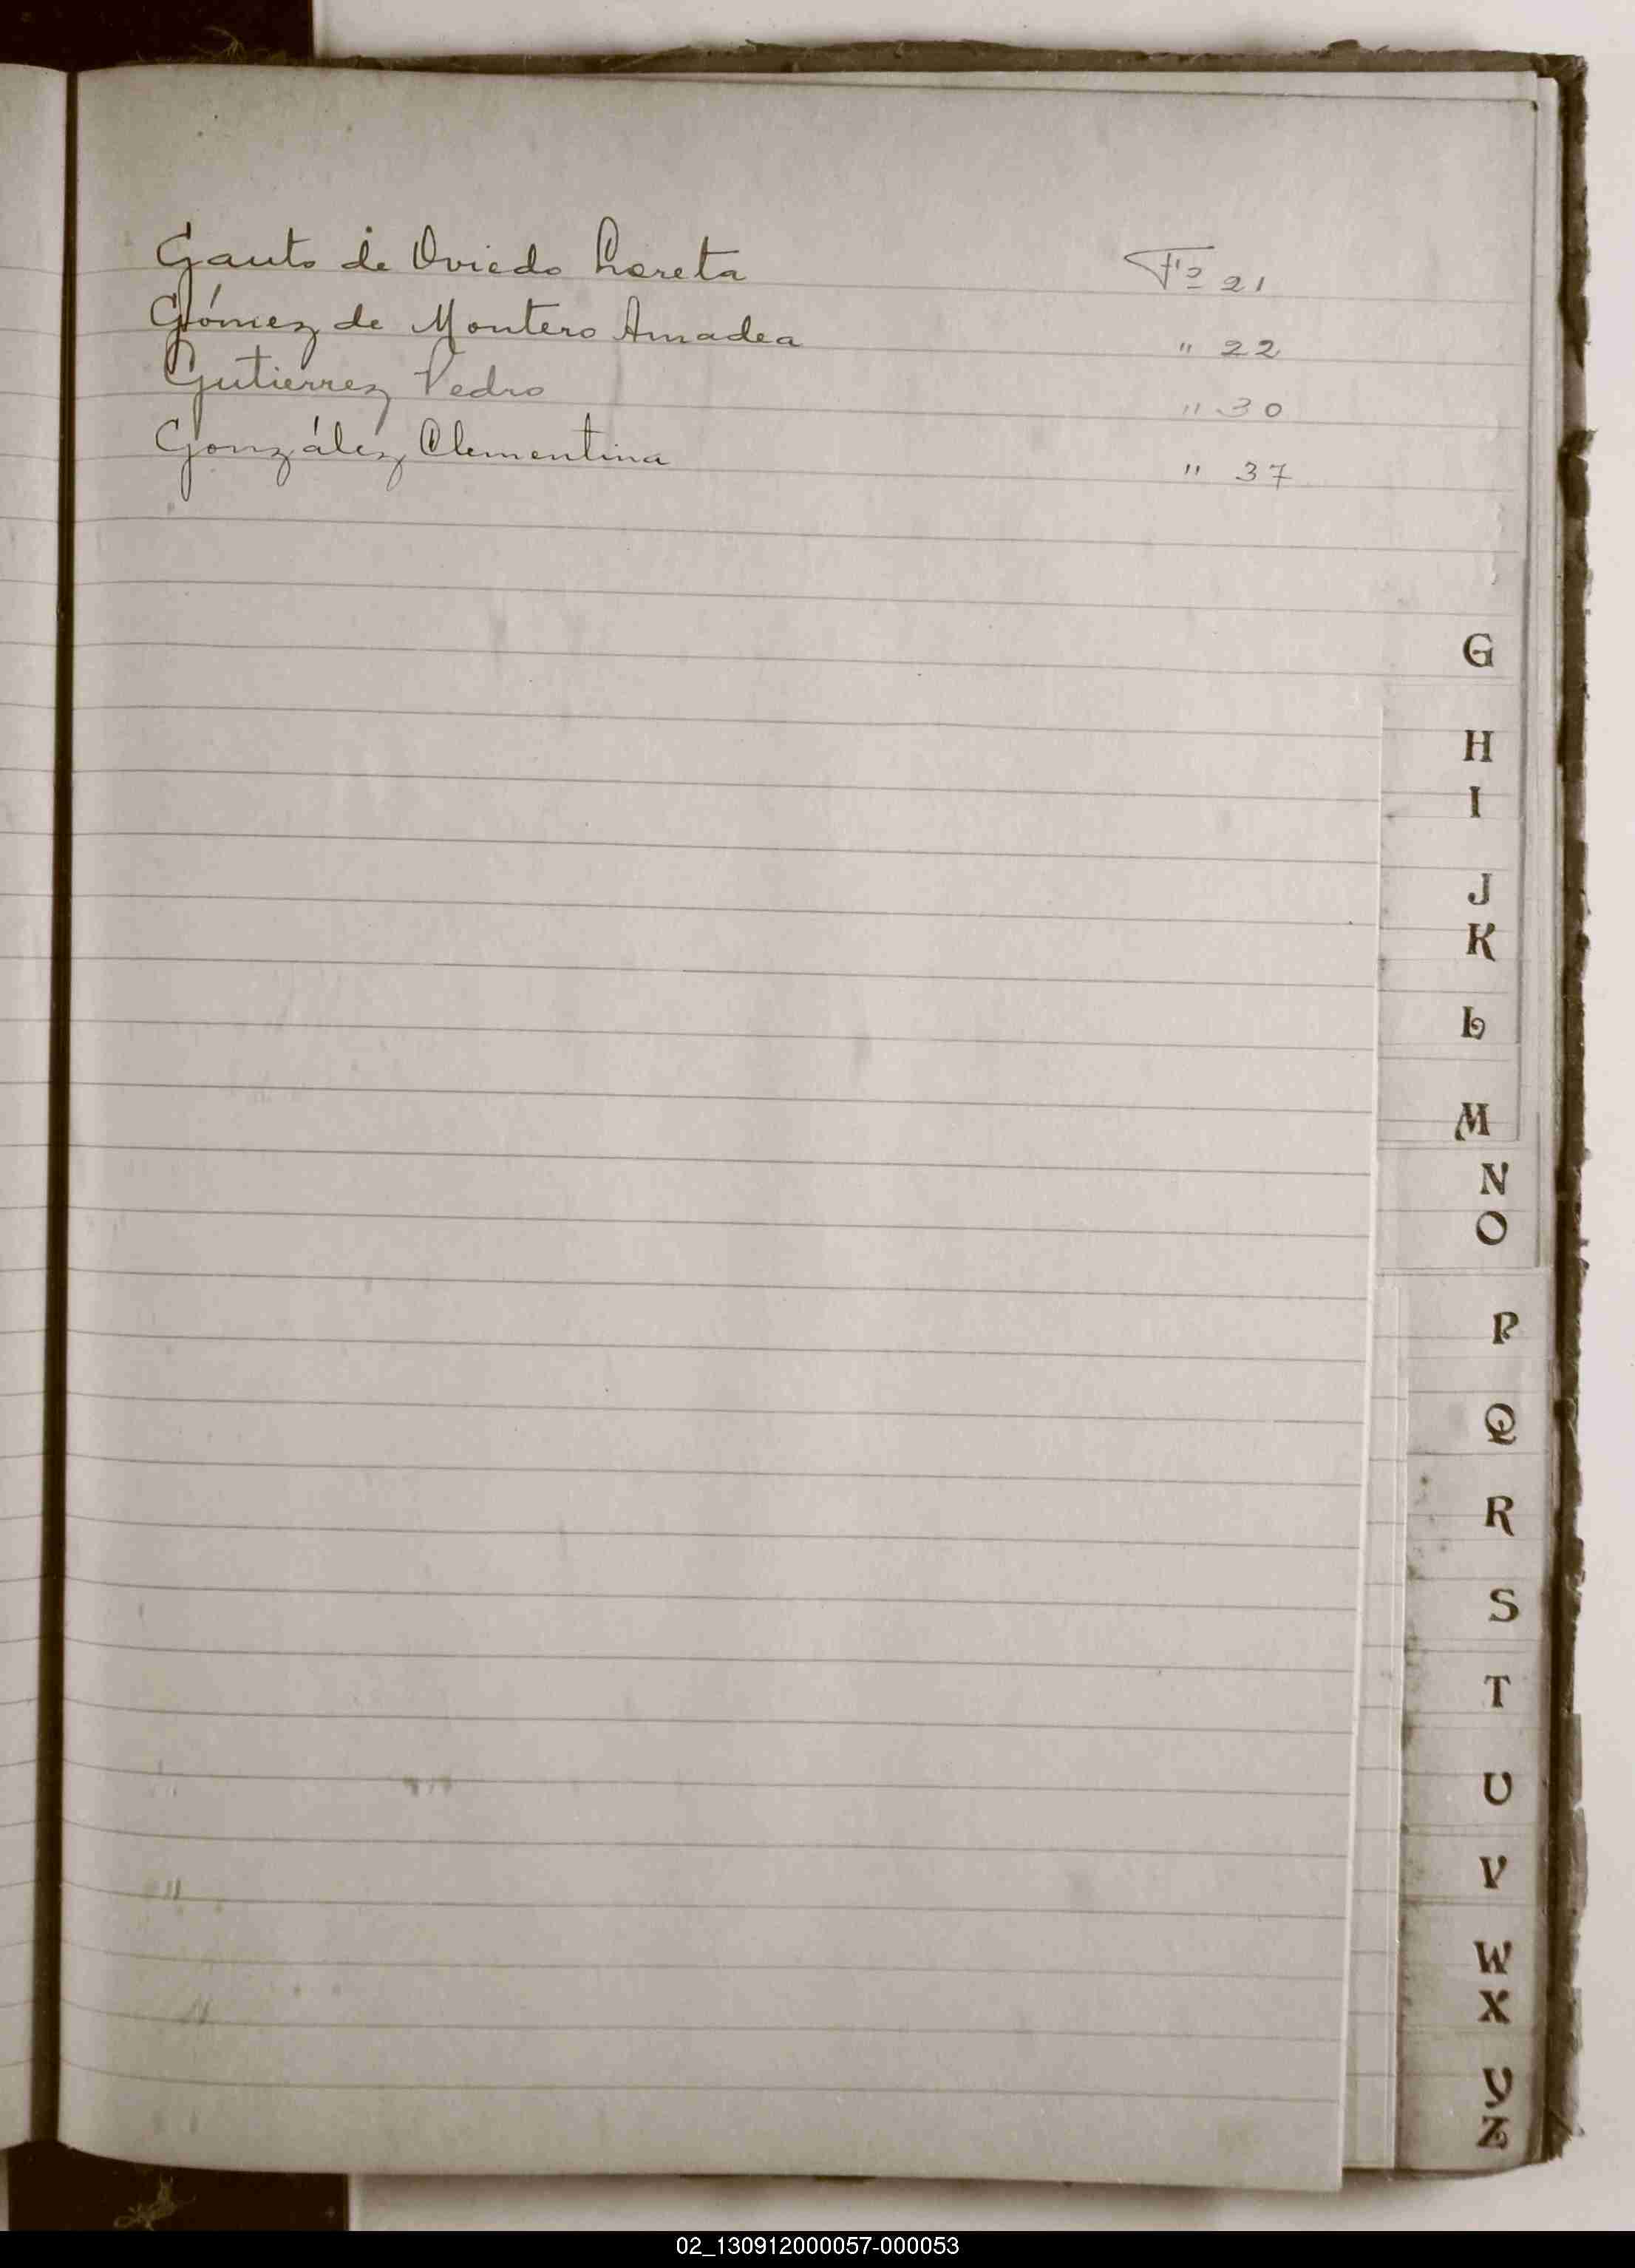 Gauto de Oviedo Loreta Fº 21
Gómez de Montero Amadea " 22
Gutierrez Pedro " 30
González Clementina " 37
G
H
I
J
K
L
M
N
O
P
Q
R
S
T
U
V
W
X
Y
Z
02_130912000057-000053